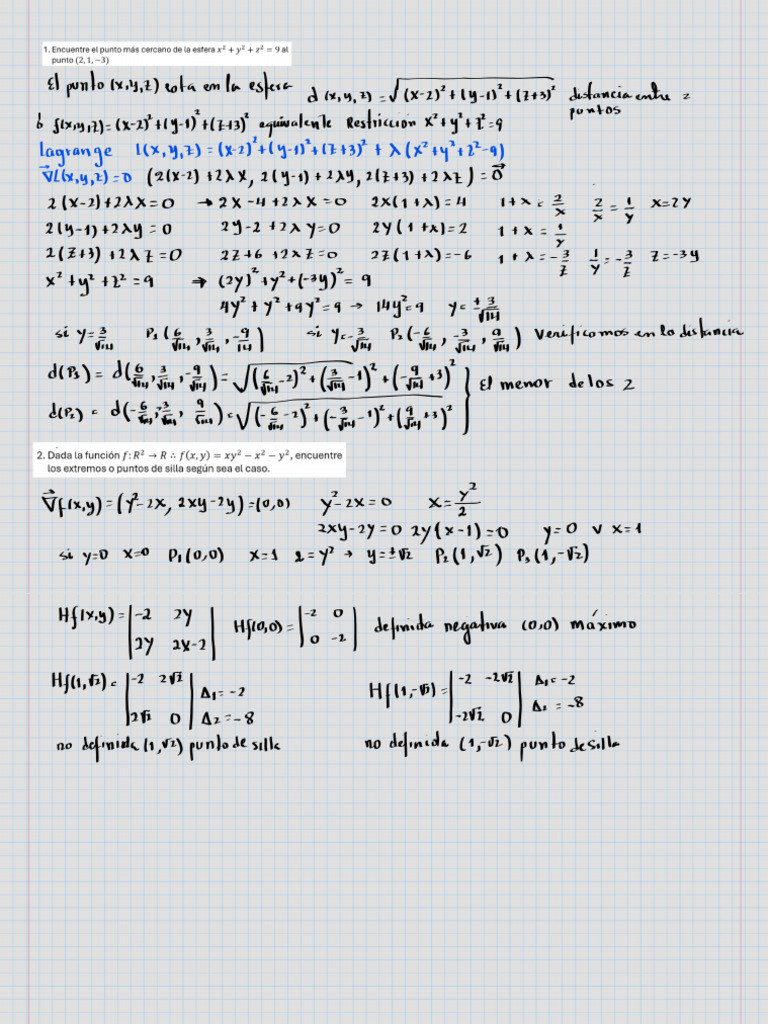 1. Encuentre el punto más cercano de la esfera x² + y² + z² = 9 al
punto (2, 1, −3)
El punto (x,y,z) esta en la esfera d(x,y,z) = √((x-2)² + (y-1)² + (z+3)²) distancia entre 2 puntos
ó f(x,y,z) = (x-2)² + (y-1)² + (z+3)² equivalente Restricción x² + y² + z² = 9
lagrange L(x,y,z) = (x-2)² + (y-1)² + (z+3)² + λ(x² + y² + z² - 9)
∇L(x,y,z) = 0 (2(x-2) + 2λx, 2(y-1) + 2λy, 2(z+3) + 2λz) = 0
2(x-2) + 2λx = 0 → 2x - 4 + 2λx = 0 2x(1+λ) = 4 1+λ = 2/x 2/x = 1/y x = 2y
2(y-1) + 2λy = 0 2y - 2 + 2λy = 0 2y(1+λ) = 2 1+λ = 1/y
2(z+3) + 2λz = 0 2z + 6 + 2λz = 0 2z(1+λ) = -6 1+λ = -3/z 1/y = -3/z z = -3y
x² + y² + z² = 9 → (2y)² + y² + (-3y)² = 9
4y² + y² + 9y² = 9 → 14y² = 9 y = ±3/√14
si y = 3/√14 P₁(6/√14, 3/√14, -9/√14) si y = -3/√14 P₂(-6/√14, -3/√14, 9/√14) Verificamos en la distancia
d(P₁) = d(6/√14, 3/√14, -9/√14) = √((6/√14 - 2)² + (3/√14 - 1)² + (-9/√14 + 3)²)
El menor de los 2
d(P₂) = d(-6/√14, -3/√14, 9/√14) = √((-6/√14 - 2)² + (-3/√14 - 1)² + (9/√14 + 3)²)
2. Dada la función f: R² → R ∴ f(x, y) = xy² − x² − y², encuentre
los extremos o puntos de silla según sea el caso.
∇f(x,y) = (y² - 2x, 2xy - 2y) = (0,0) y² - 2x = 0 x = y²/2
2xy - 2y = 0 2y(x-1) = 0 y = 0 v x = 1
si y=0 x=0 P₁(0,0) x=1 2=y² → y=±√2 P₂(1,√2) P₃(1,-√2)
Hf(x,y) = |-2 2y; 2y 2x-2| Hf(0,0) = |-2 0; 0 -2| definida negativa (0,0) máximo
Hf(1,√2) = |-2 2√2; 2√2 0| Δ₁ = -2 Δ₂ = -8 Hf(1,-√2) = |-2 -2√2; -2√2 0| Δ₁ = -2 Δ₂ = -8
no definida (1,√2) punto de silla no definida (1,-√2) punto de silla